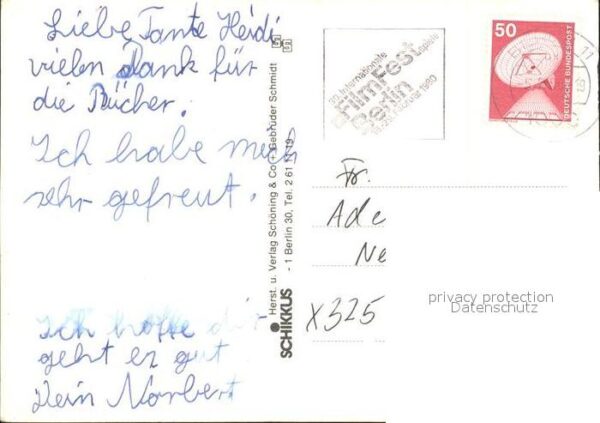 Liebe Tante Heidi
vielen Dank für
die Bücher.
Ich habe mich
sehr gefreut.
Ich hoffe dir
geht es gut
Dein Norbert
SCHIKKUS
Herst. u. Verlag Schöning & Co + Gebrüder Schmidt
- 1 Berlin 30, Tel. 2 61
30. Internationale
FilmFestspiele
Berlin
Februar 1980
50
DEUTSCHE BUNDESPOST
Fr.
Ade
Ne
X325
privacy protection
Datenschutz